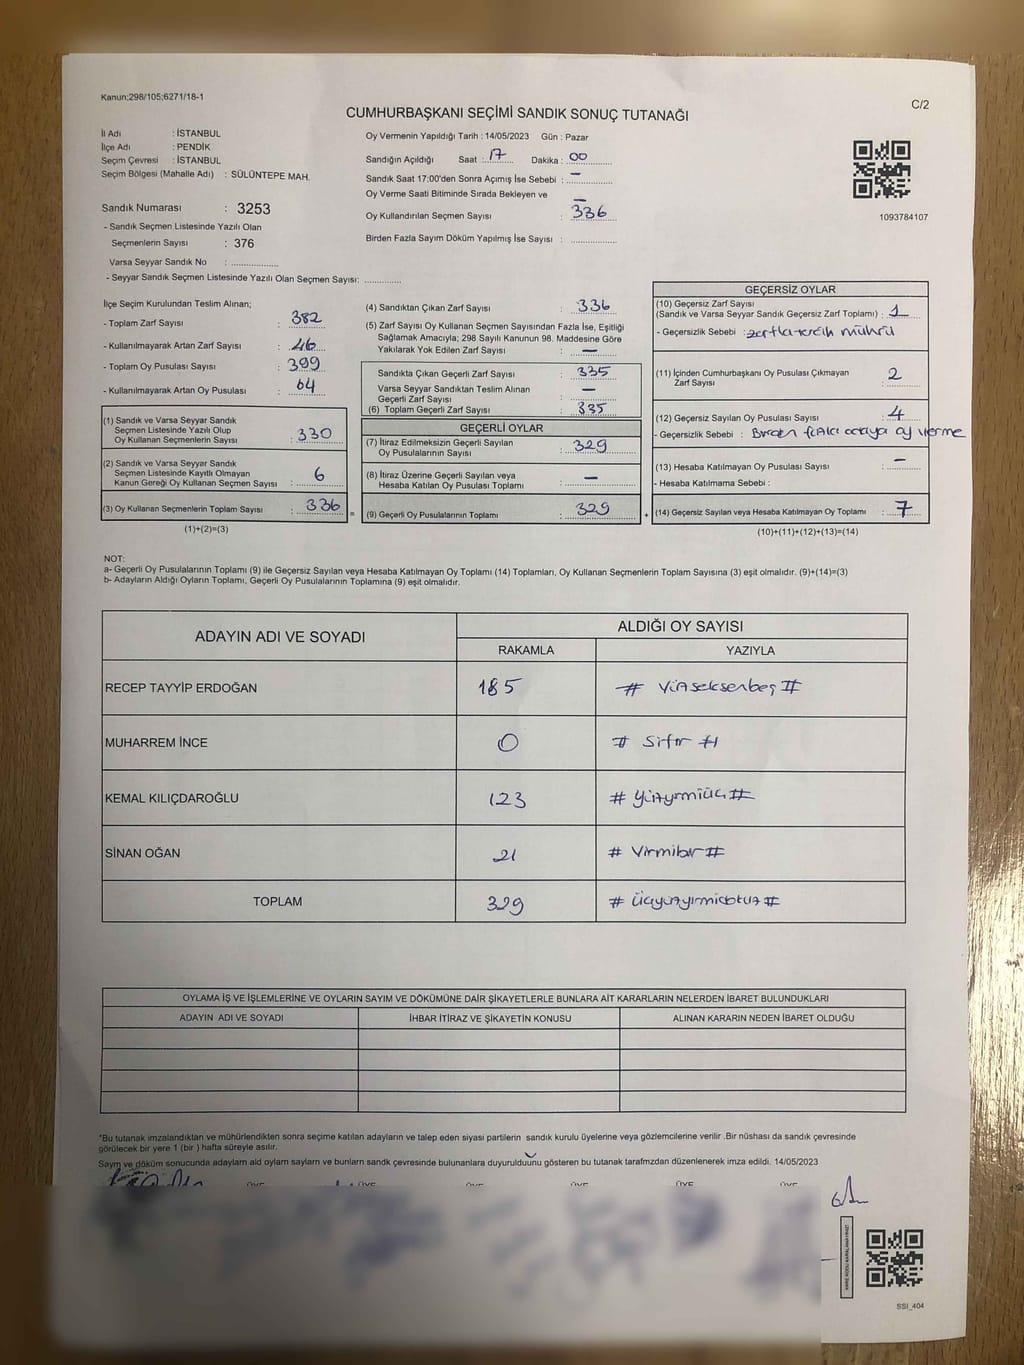 Kanun;298/105;6271/18-1
C/2
CUMHURBAŞKANI SEÇİMİ SANDIK SONUÇ TUTANAĞI
İl Adı : İSTANBUL
İlçe Adı : PENDİK
Seçim Çevresi : İSTANBUL
Seçim Bölgesi (Mahalle Adı) : SÜLÜNTEPE MAH.
Sandık Numarası : 3253
- Sandık Seçmen Listesinde Yazılı Olan
Seçmenlerin Sayısı : 376
Varsa Seyyar Sandık No : ................
- Seyyar Sandık Seçmen Listesinde Yazılı Olan Seçmen Sayısı: ..............
Oy Vermenin Yapıldığı Tarih : 14/05/2023 Gün : Pazar
Sandığın Açıldığı Saat : 17 Dakika : 00
Sandık Saat 17:00'den Sonra Açımış İse Sebebi : —
Oy Verme Saati Bitiminde Sırada Bekleyen ve —
Oy Kullandırılan Seçmen Sayısı : 336
Birden Fazla Sayım Döküm Yapılmış İse Sayısı : ..............
1093784107
İlçe Seçim Kurulundan Teslim Alınan;
- Toplam Zarf Sayısı : 382
- Kullanılmayarak Artan Zarf Sayısı : 46
- Toplam Oy Pusulası Sayısı : 399
- Kullanılmayarak Artan Oy Pusulası : 64
(1) Sandık ve Varsa Seyyar Sandık
Seçmen Listesinde Yazılı Olup
Oy Kullanan Seçmenlerin Sayısı : 330
(2) Sandık ve Varsa Seyyar Sandık
Seçmen Listesinde Kayıtlı Olmayan
Kanun Gereği Oy Kullanan Seçmen Sayısı : 6
(3) Oy Kullanan Seçmenlerin Toplam Sayısı : 336 =
(1)+(2)=(3)
(4) Sandıktan Çıkan Zarf Sayısı : 336
(5) Zarf Sayısı Oy Kullanan Seçmen Sayısından Fazla İse, Eşitliği
Sağlamak Amacıyla; 298 Sayılı Kanunun 98. Maddesine Göre
Yakılarak Yok Edilen Zarf Sayısı : —
Sandıkta Çıkan Geçerli Zarf Sayısı : 335
Varsa Seyyar Sandıktan Teslim Alınan
Geçerli Zarf Sayısı : —
(6) Toplam Geçerli Zarf Sayısı : 335
GEÇERLİ OYLAR
(7) İtiraz Edilmeksizin Geçerli Sayılan
Oy Pusulalarının Sayısı : 329
(8) İtiraz Üzerine Geçerli Sayılan veya
Hesaba Katılan Oy Pusulası Toplamı : —
(9) Geçerli Oy Pusulalarının Toplamı : 329 +
GEÇERSİZ OYLAR
(10) Geçersiz Zarf Sayısı
(Sandık ve Varsa Seyyar Sandık Geçersiz Zarf Toplamı) : 1
- Geçersizlik Sebebi : zarfta tercih mührü
(11) İçinden Cumhurbaşkanı Oy Pusulası Çıkmayan
Zarf Sayısı : 2
(12) Geçersiz Sayılan Oy Pusulası Sayısı : 4
- Geçersizlik Sebebi : Birden fazla adaya oy verme
(13) Hesaba Katılmayan Oy Pusulası Sayısı : —
- Hesaba Katılmama Sebebi :
(14) Geçersiz Sayılan veya Hesaba Katılmayan Oy Toplamı : 7
(10)+(11)+(12)+(13)=(14)
NOT:
a- Geçerli Oy Pusulalarının Toplamı (9) ile Geçersiz Sayılan veya Hesaba Katılmayan Oy Toplamı (14) Toplamları, Oy Kullanan Seçmenlerin Toplam Sayısına (3) eşit olmalıdır. (9)+(14)=(3)
b- Adayların Aldığı Oyların Toplamı, Geçerli Oy Pusulalarının Toplamına (9) eşit olmalıdır.
ADAYIN ADI VE SOYADI
ALDIĞI OY SAYISI
RAKAMLA YAZIYLA
RECEP TAYYİP ERDOĞAN 185 # Yüzseksenbeş #
MUHARREM İNCE 0 # Sıfır #
KEMAL KILIÇDAROĞLU 123 # Yüzyirmiüç #
SİNAN OĞAN 21 # Yirmibir #
TOPLAM 329 # Üçyüzyirmidokuz #
OYLAMA İŞ VE İŞLEMLERİNE VE OYLARIN SAYIM VE DÖKÜMÜNE DAİR ŞİKAYETLERLE BUNLARA AİT KARARLARIN NELERDEN İBARET BULUNDUKLARI
ADAYIN ADI VE SOYADI İHBAR İTİRAZ VE ŞİKAYETİN KONUSU ALINAN KARARIN NEDEN İBARET OLDUĞU
*Bu tutanak imzalandıktan ve mühürlendikten sonra seçime katılan adayların ve talep eden siyasi partilerin sandık kurulu üyelerine veya gözlemcilerine verilir .Bir nüshası da sandık çevresinde
görülecek bir yere 1 (bir ) hafta süreyle asılır.
Sayım ve döküm sonucunda adayların ald oyların sayların ve bunların sandk çevresinde bulunanlara duyurulduunu gösteren bu tutanak tarafmzdan düzenlenerek imza edildi. 14/05/2023
ÜYE ÜYE ÜYE ÜYE ÜYE ÜYE
SSI_404